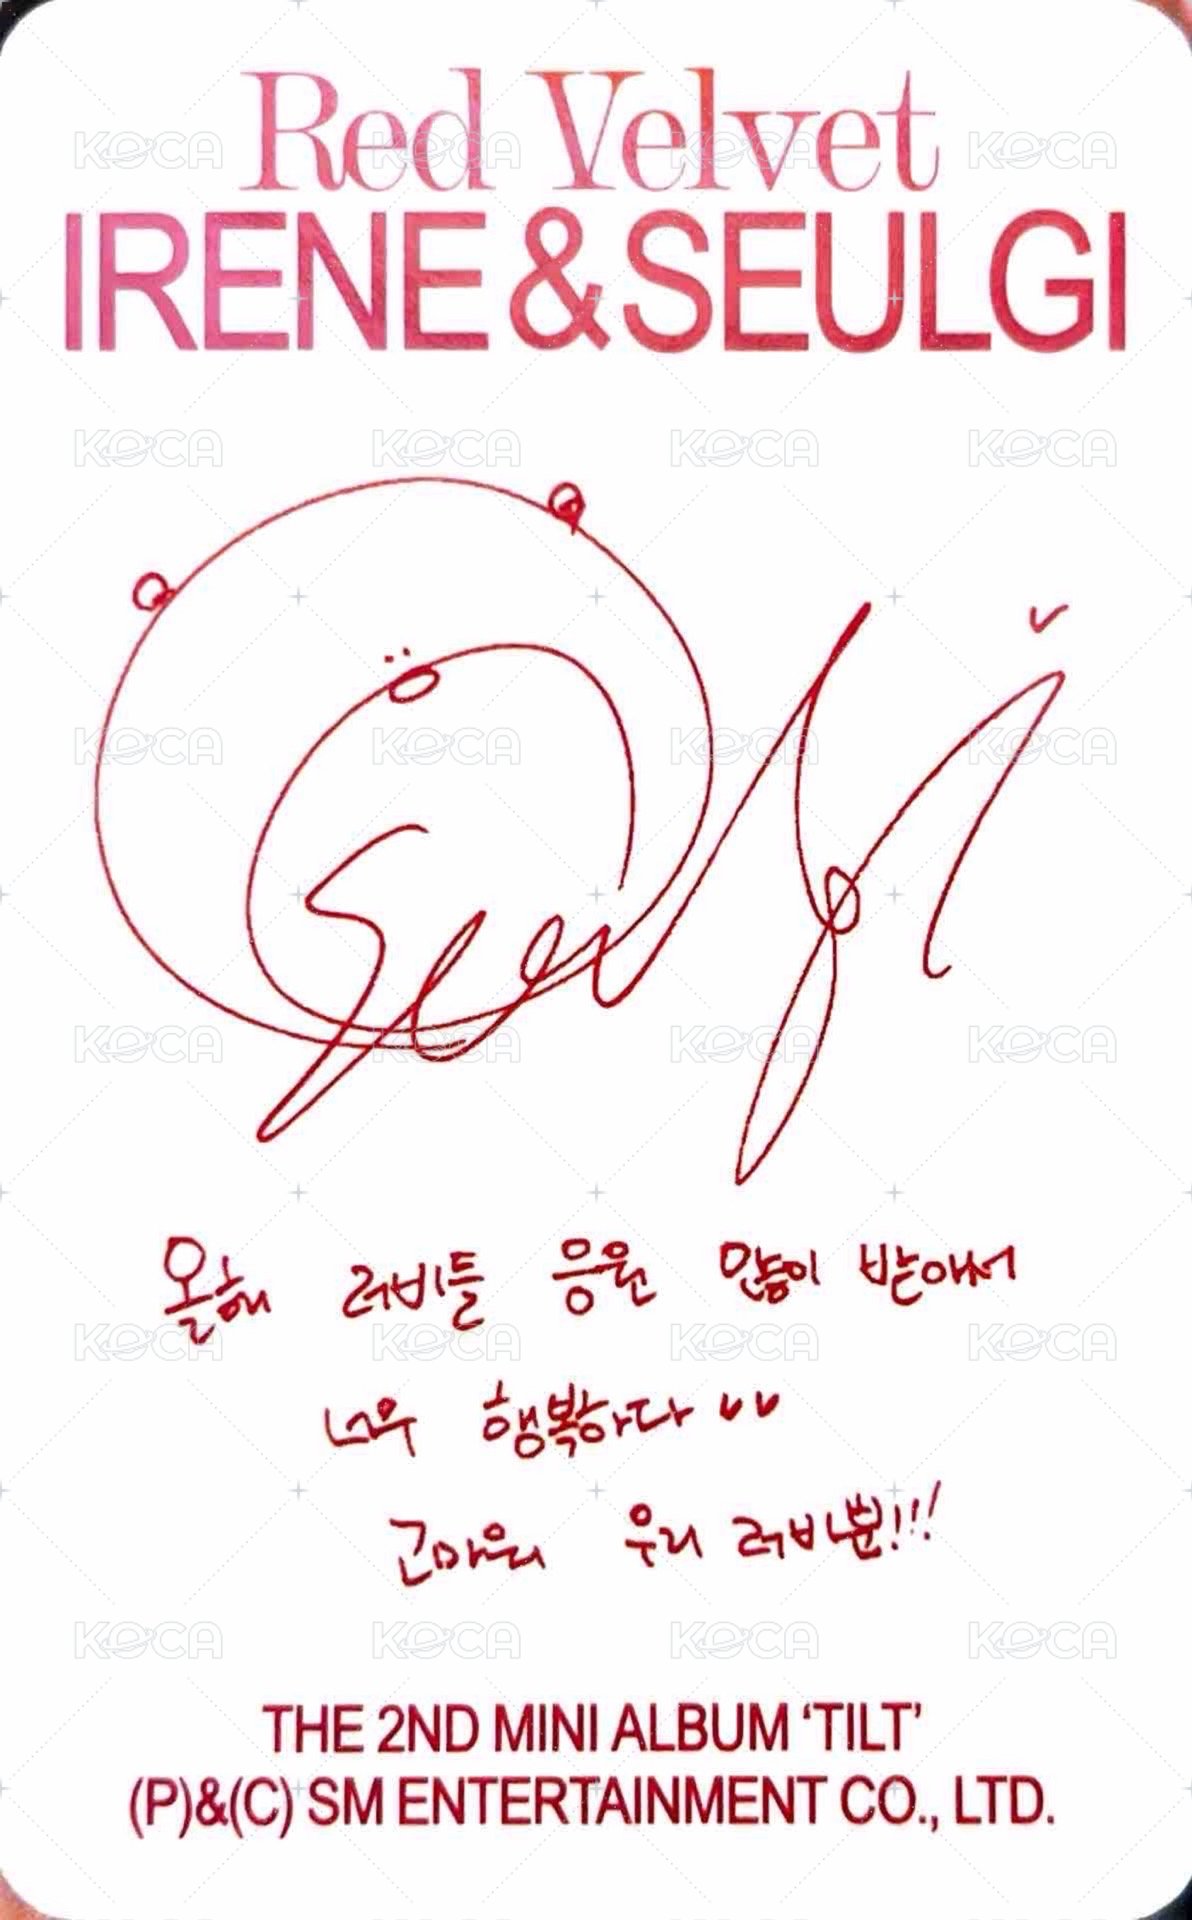 Red Velvet
IRENE & SEULGI
Seulgi
올해 러비들 응원 많이 받아서
너무 행복하다
고마워 우리 러비뿐!!!
THE 2ND MINI ALBUM ‘TILT’
(P)&(C) SM ENTERTAINMENT CO., LTD.
KOCA